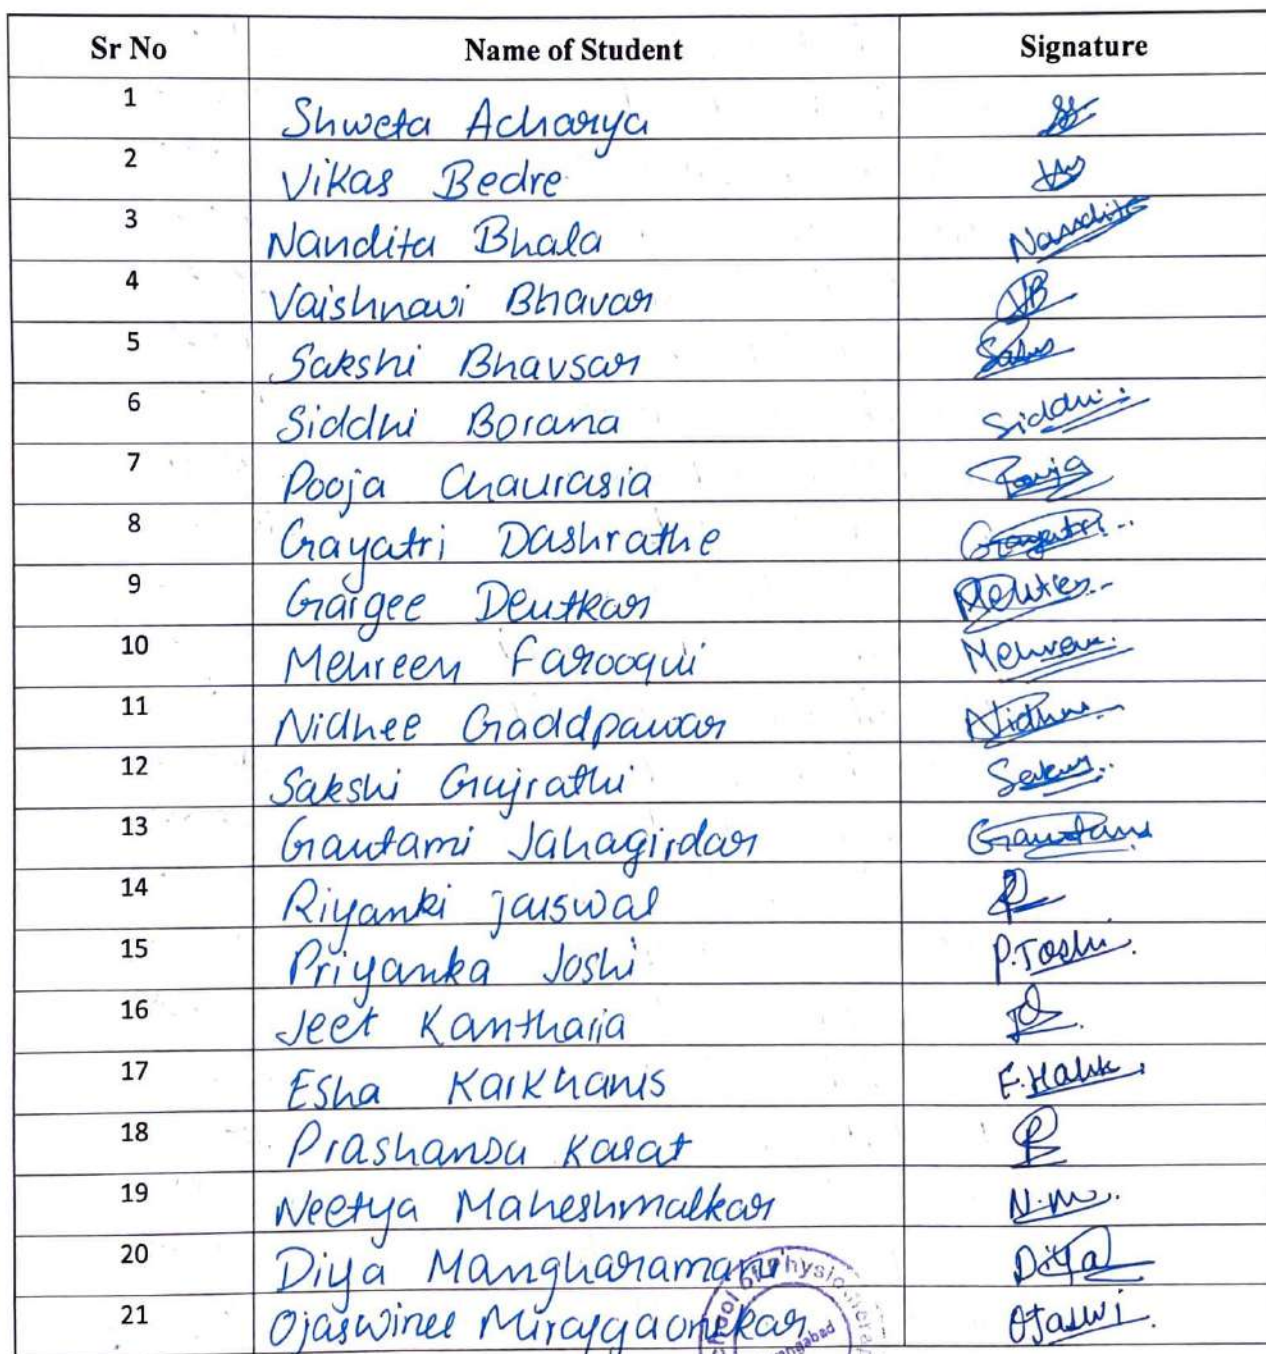 Sr No Name of Student Signature
1 Shweta Acharya
2 Vikas Bedre
3 Nandita Bhala Nandita
4 Vaishnavi Bhavar VB
5 Sakshi Bhavsar
6 Siddhi Borana Siddhi
7 Pooja Chaurasia Pooja
8 Gayatri Dashrathe Gayatri
9 Gargee Deutkar
10 Mehreen Farooqui Mehreen
11 Nidhee Gaddpawar Nidhee
12 Sakshi Gujrathi
13 Gautami Jahagirdar Gautami
14 Riyanki jaiswal
15 Priyanka Joshi P.Joshi
16 Jeet Kantharia
17 Esha Karkhanis
18 Prashansa Karat
19 Neetya Maheshmalkar N.M.
20 Diya Mangharamani Diya
21 Ojaswinee Miraygaonkar Ojaswi